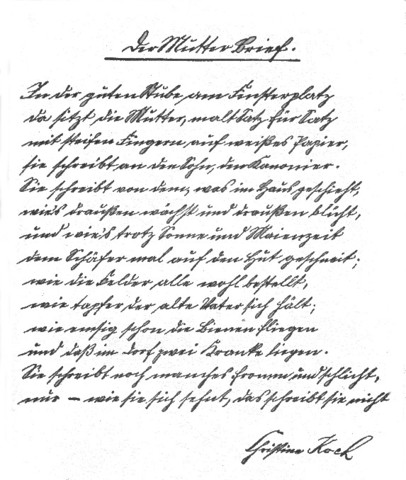 Der Mutter Brief.
In der guten Stube am Fensterplatz
da sitzt die Mutter, malt Satz für Satz
mit steifen Fingern auf weißes Papier,
sie schreibt an den Sohn, den Kanonier.
Sie schreibt von dem, was im Haus geschieht,
wie's draußen wächst und draußen blüht,
und wie's trotz Sonne und Maienzeit
dem Schäfer mal auf den Hut geschneit;
wie die Felder alle wohl bestellt,
wie tapfer der alte Vater sich hält;
wie emsig schon die Bienen fliegen
und daß im Dorf zwei Kranke liegen.
Sie schreibt noch manches fromm und schlicht,
nur – wie sie sich sehnt, das schreibt sie nicht
Christine Koch